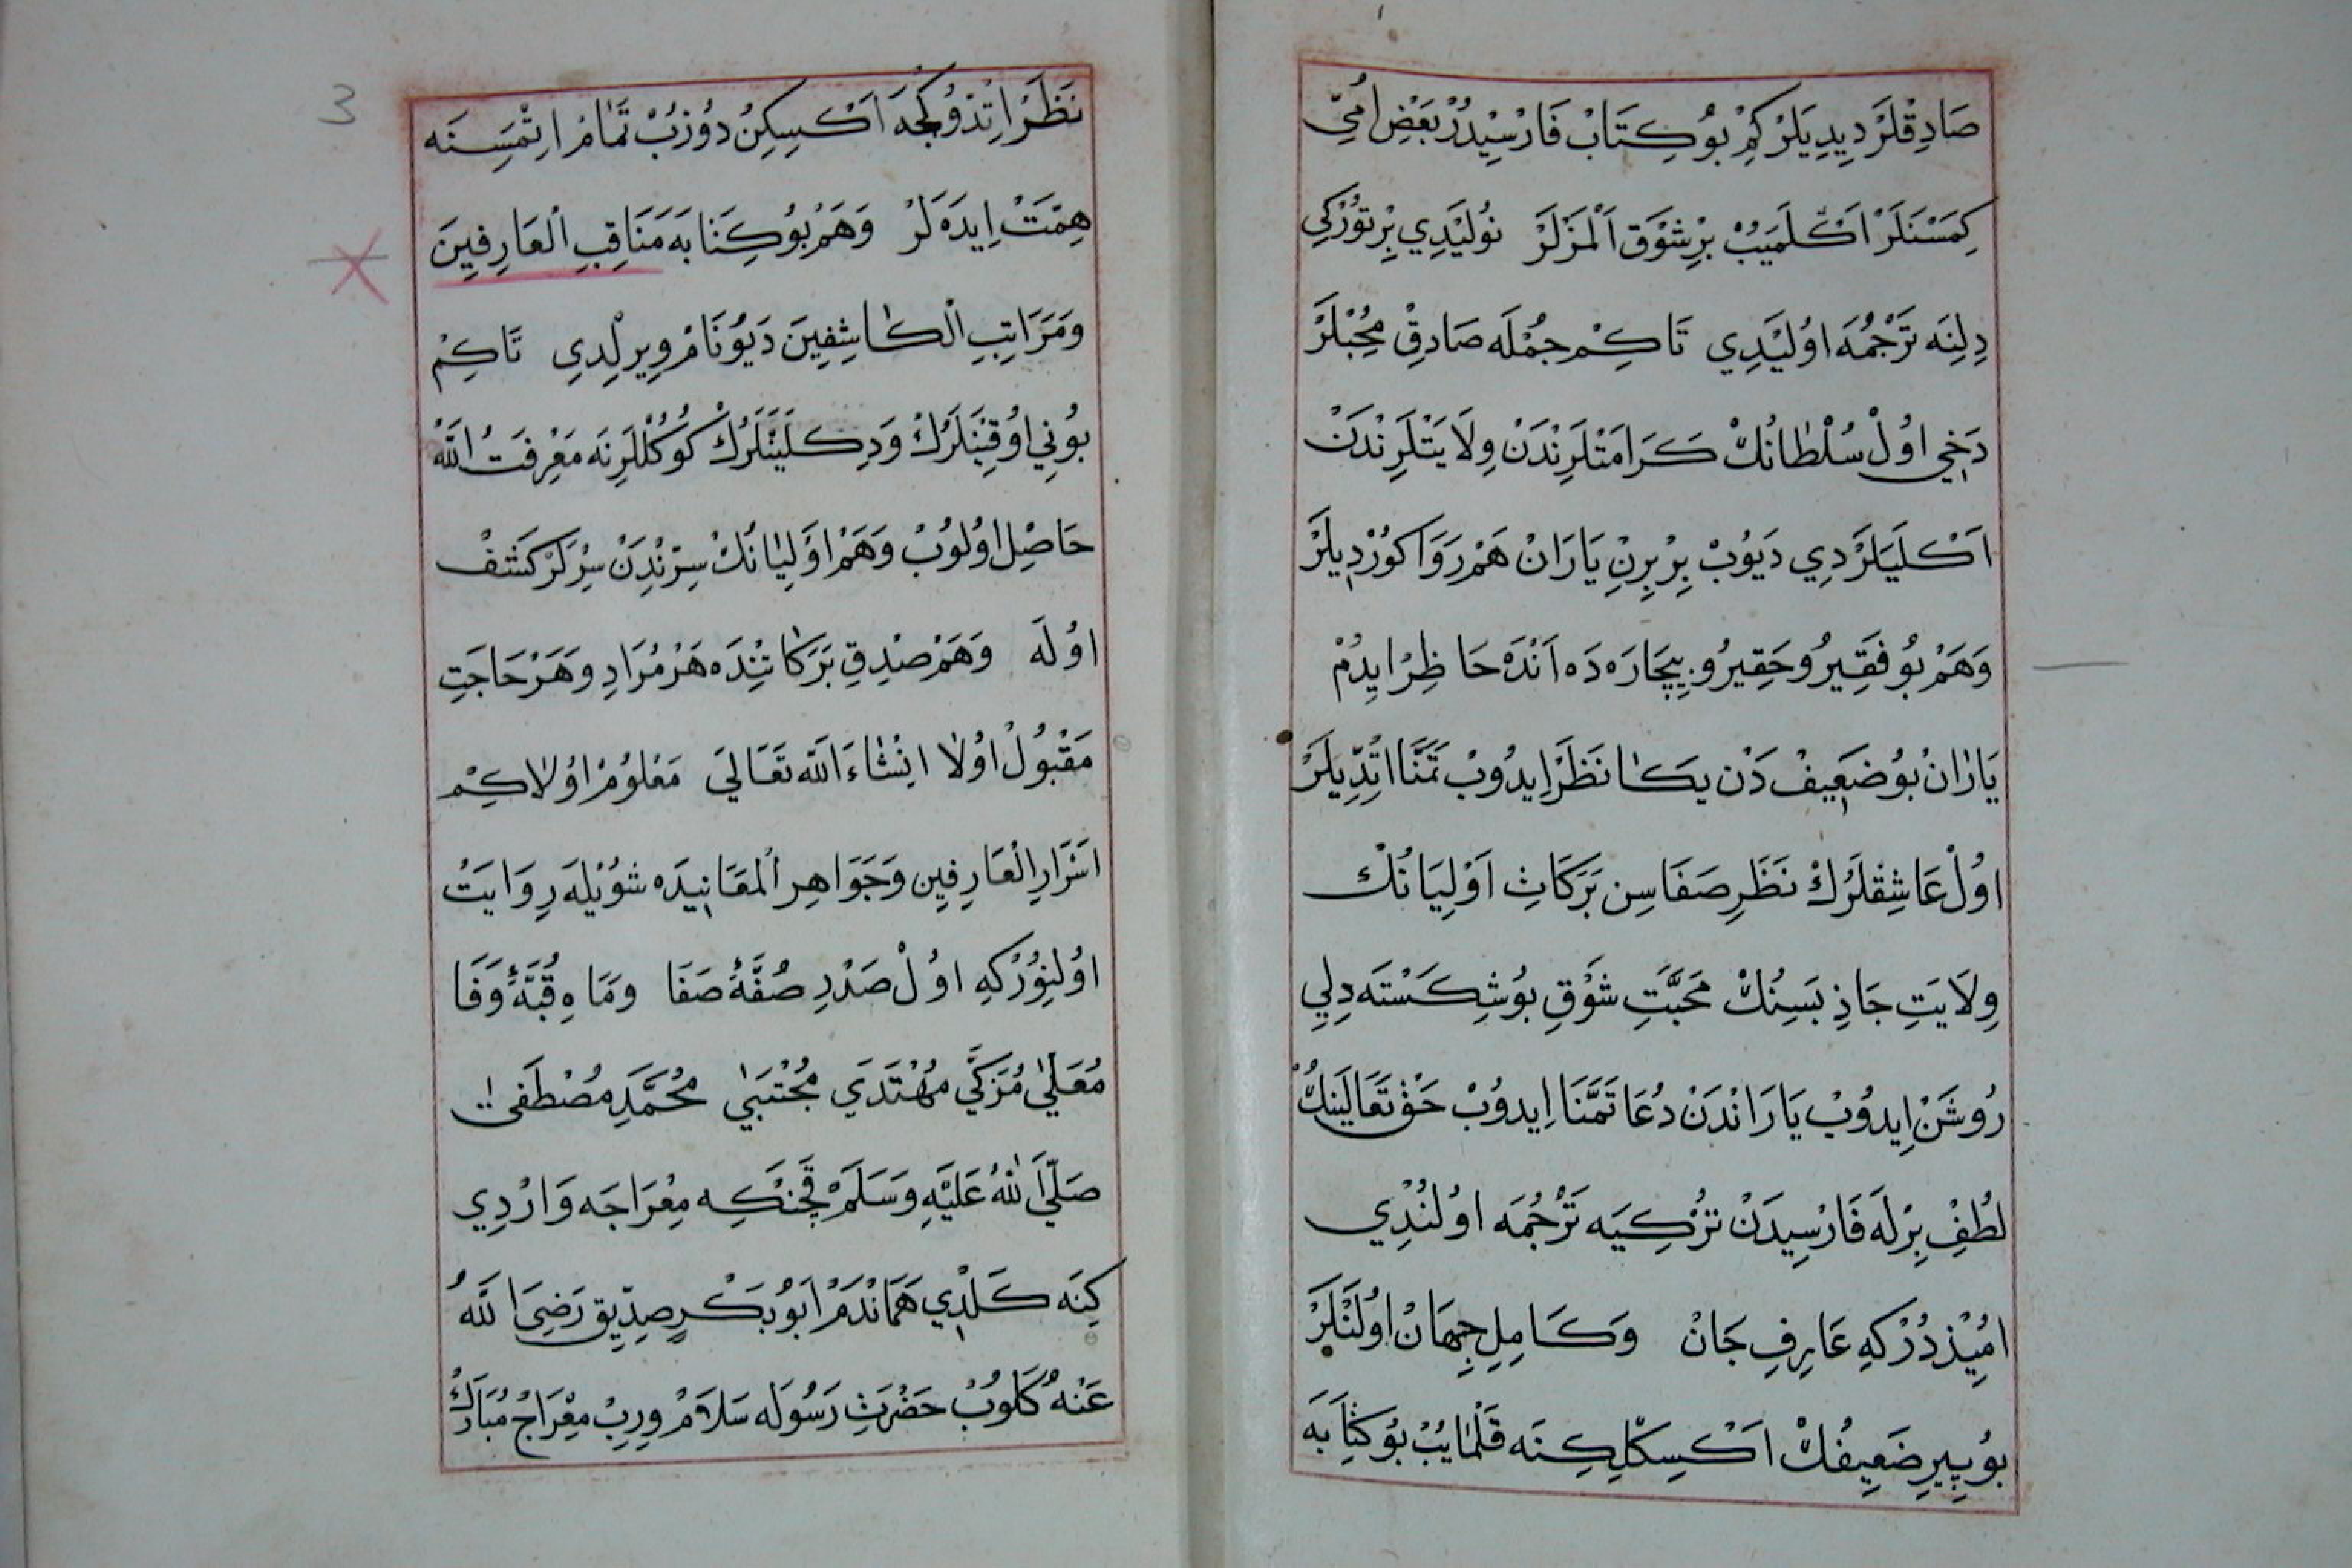 صَادِقْلَرْ دِيدِيلَرْ كِمْ بُو كِتَابْ فَارْسِيدُرْ بَعْضِ اُمِّي
كِمَسْنَلَرْ اَكْلَمَيُبْ بِرْ شَوْق اَلْمَزْلَرْ نُولَيْدِي بِرْ تُورْكِي
دِلِنَه تَرْجُمَه اوُلَيْدِي تَاكِمْ جُمْلَه صَادِقْ مُحِبْلَرْ
دَخِي اوُلْ سُلْطَانُكْ كَرَامَتْلَرِنْدَنْ وِلَايَتْلَرِنْدَنْ
اَكْلَيَلَرْدِي دَيُوبْ بِرْ بِرِنِ يَارَانْ هَمْ رَوَا كُورْدِيلَرْ
وَهَمْ بُو فَقِيرُ و حَقِيرُ و بِيچَارَه دَه اَنْدَه حَاظِرْ ايدُمْ
يَارَانْ بُو ضَعِيفْ دَنْ يَكَا نَظَرْ اِيدُوبْ تَمَنَّا اتِدّيلَرْ
اوُلْ عَاشِقْلَرُكْ نَظَرِ صَفَاسِن بَرَكَاتِ اَوْلِيَانُكْ
وِلَايَتِ جَاذِبَسِنُكْ مَحَبَّتِ شَوْقِ بُو شِكَسْتَه دِلِي
رُوشَنْ اِيدُوبْ يَارَانْدَنْ دُعَا تَمَنَّا اِيدُوبْ حَقْ تَعَالَينِكْ
لُطْفِ بِرْلَه فَارْسِيدَنْ تُرْكِيَه تَرْجُمَه اوُلُنْدِي
امِيْذْدُرْ كِهِ عَارِفِ جَانْ وَكَامِلِ جِهَانْ اوُلَنْلَرْ
بُو پِيرِ ضَعِيفُكْ اَكْسِكْلِكِنَه قَلْمَايُبْ بُو كِتَابَه
نَظَرْ اِتْدُوكِجَه اَكْسِكِنُ دُوزُبْ تَمَامْ اِتْمَسِنَه
هِمَّتْ اِيدَه لَرْ وَهَمْ بُو كِتَابَه مَنَاقِبِ الْعَارِفِينَ
وَمَرَاتِبِ الْكَاشِفِينَ دَيُو نَامْ وِيرِلْدِي تَاكِمْ
بُونِي اوُقِيَنْلَرُكْ وَدِكْلَيَنْلَرُكْ كُوكُلْلَرِنَه مَعْرِفَتُ اللَّهْ
حَاصِلْ اوُلُوبْ وَهَمْ اَوْلِيَانُكْ سِرّنْدِنْ سِرْلَرْ كَشْفْ
اوُلَه وَهَمْ صِدْقِ بَرَكَاتِنْدَه هَرْ مُرَادِ وَهَرْ حَاجَتِ
مَقْبُولْ اوُلَا انْشَاءَ اللَّه تَعَالَي مَعْلُومْ اوُلَاكِمْ
اَسْرَارِ الْعَارِفِين وَجَوَاهِرِ الْمعَانِيدَه شُويْلَه رِوَايَتْ
اوُلِنُورْكِهِ اوُلْ صَدْرِ صُفَّهٔ صَفَا وَمَاهِ قُبَّهٔ وَفَا
مُعَلّي مُزَكَّي مُهْتَدَي مُجْتَبَي مُحَمَّدِ مُصْطَفَي
صَلَّيَ اللهُ عَلَيْهِ وَسَلَمْ قَچَنْكِه مِعْرَاجَه وَارْدِي
كِنَه كَلْدِي هَمَانْدَمْ ابُو بَكْرِ صِدّيق رَضِيَ اللَّهُ
عَنْهُ كَلُوبْ حَضْرَتِ رَسُولَه سَلَامْ وِرِبْ مِعْرَاجُ مُبَارَكْ
3